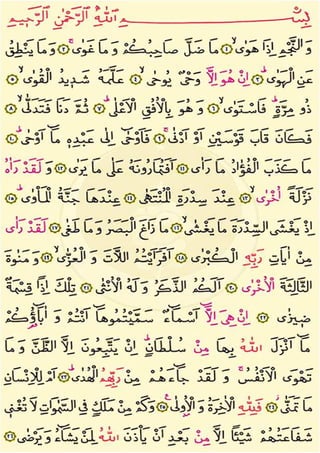 بِسْمِ اللهِ الرَّحْمٰنِ الرَّحِيمِ
وَالنَّجْمِ اِذَا هَوٰىۙ ﴿١﴾ مَا ضَلَّ صَاحِبُكُمْ وَمَا غَوٰىۚ ﴿٢﴾ وَمَا يَنْطِقُ
عَنِ الْهَوٰىۜ ﴿٣﴾ اِنْ هُوَ اِلَّا وَحْيٌ يُوحٰىۙ ﴿٤﴾ عَلَّمَهُ شَدِيدُ الْقُوٰىۙ ﴿٥﴾
ذُو مِرَّةٍۜ فَاسْتَوٰىۙ ﴿٦﴾ وَهُوَ بِالْاُفُقِ الْاَعْلٰىۜ ﴿٧﴾ ثُمَّ دَنَا فَتَدَلّٰىۙ ﴿٨﴾
فَكَانَ قَابَ قَوْسَيْنِ اَوْ اَدْنٰىۚ ﴿٩﴾ فَاَوْحٰٓى اِلٰى عَبْدِهِ مَٓا اَوْحٰىۜ ﴿١٠﴾
مَا كَذَبَ الْفُؤٰادُ مَا رَاٰى ﴿١١﴾ اَفَتُمَارُونَهُ عَلٰى مَا يَرٰى ﴿١٢﴾ وَلَقَدْ رَاٰهُ
نَزْلَةً اُخْرٰىۙ ﴿١٣﴾ عِنْدَ سِدْرَةِ الْمُنْتَهٰى ﴿١٤﴾ عِنْدَهَا جَنَّةُ الْمَأْوٰىۜ ﴿١٥﴾
اِذْ يَغْشَى السِّدْرَةَ مَا يَغْشٰىۙ ﴿١٦﴾ مَا زَاغَ الْبَصَرُ وَمَا طَغٰى ﴿١٧﴾ لَقَدْ رَاٰى
مِنْ اٰيَاتِ رَبِّهِ الْكُبْرٰى ﴿١٨﴾ اَفَرَاَيْتُمُ اللَّاتَ وَالْعُزّٰىۙ ﴿١٩﴾ وَمَنٰوةَ
الثَّالِثَةَ الْاُخْرٰى ﴿٢٠﴾ اَلَكُمُ الذَّكَرُ وَلَهُ الْاُنْثٰى ﴿٢١﴾ تِلْكَ اِذًا قِسْمَةٌ
ضِيزٰى ﴿٢٢﴾ اِنْ هِيَ اِلَّٓا اَسْمَٓاءٌ سَمَّيْتُمُوهَٓا اَنْتُمْ وَاٰبَٓاؤُ۬كُمْ
مَٓا اَنْزَلَ اللهُ بِهَا مِنْ سُلْطَانٍۜ اِنْ يَتَّبِعُونَ اِلَّا الظَّنَّ وَمَا
تَهْوَى الْاَنْفُسُۚ وَلَقَدْ جَٓاءَهُمْ مِنْ رَبِّهِمُ الْهُدٰىۜ ﴿٢٣﴾ اَمْ لِلْاِنْسَانِ
مَا تَمَنّٰىۘ ﴿٢٤﴾ فَلِلّٰهِ الْاٰخِرَةُ وَالْاُولٰى۟ ﴿٢٥﴾ وَكَمْ مِنْ مَلَكٍ فِي السَّمٰوَاتِ لَا تُغْنِي
شَفَاعَتُهُمْ شَيْـًٔا اِلَّا مِنْ بَعْدِ اَنْ يَأْذَنَ اللهُ لِمَنْ يَشَٓاءُ وَيَرْضٰى ﴿٢٦﴾